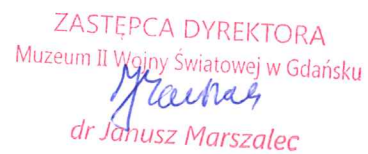 ZASTĘPCA DYREKTORA
Muzeum II Wojny Światowej w Gdańsku
dr Janusz Marszalec